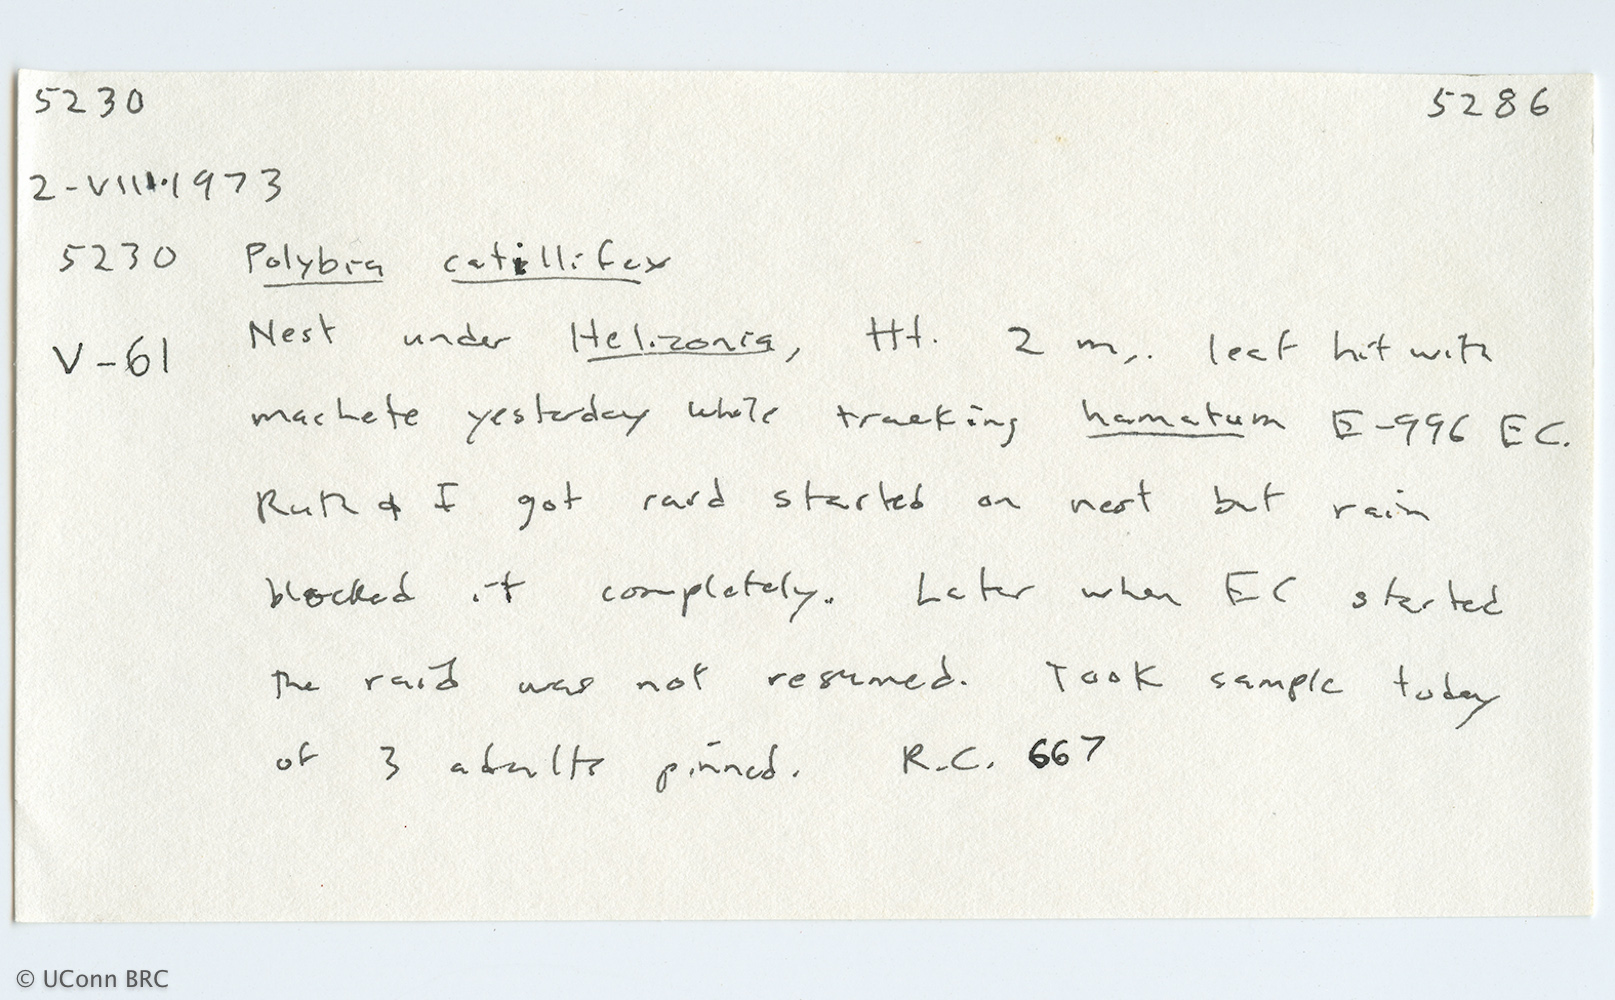 5230 5286
2-VIII-1973
5230 Polybia catillifex
V-61 Nest under Heliconia, Ht. 2 m,. leaf hit with
machete yesterday while tracking hamatum E-996 EC.
Ruth & I got raid started on nest but rain
blocked it completely. Later when EC started
the raid was not resumed. Took sample today
of 3 adults pinned. R.C. 667
© UConn BRC